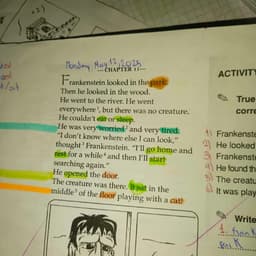 Monday, May 12, 2025
CHAPTER 11
Frankenstein looked in the park.
Then he looked in the wood.
He went to the river. He went
everywhere¹, but there was no creature.
He couldn't eat or sleep.
He was very worried² and very tired.
"I don't know where else I can look,"
thought³ Frankenstein. "I'll go home and
rest for a while⁴ and then I'll start
searching again."
He opened the door.
The creature was there. It sat in the
middle⁵ of the floor playing with a cat!
ACTIVITY
True
corre
Frankenste
He looked
Frankenste
He found th
The creatu
It was play
Write
1.